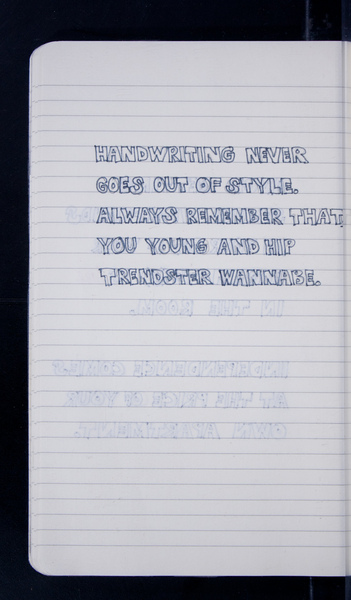 HANDWRITING NEVER
GOES OUT OF STYLE.
ALWAYS REMEMBER THAT,
YOU YOUNG AND HIP
TRENDSTER WANNABE.